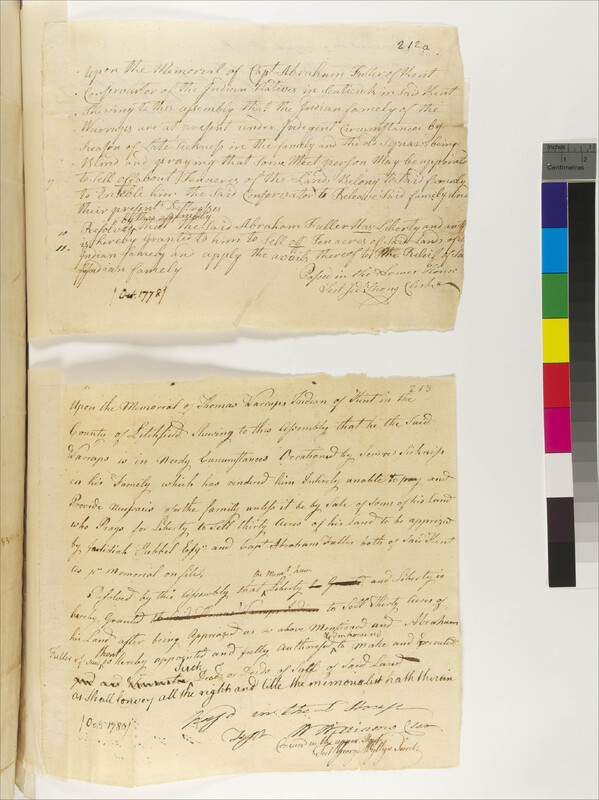 212a
Upon the Memorial of Capt Abraham Fuller of Kent
Conservator of the Indian Natives in Scaticuk in said Kent
Shewing to this assembly that the Indian famely of the
Warrups are at present under Indegent Circumstances by
Reason of Late Sickness in the family and the Old Squaw being
Blind and praying that Some Meet person May be appointed
to Sell off about Ten acres of the Land belong to said famely
to Enteble him the Said Conservator to Releave Said famely under
their present Distresses
by this assembly
Resolved that the Said Abraham Fuller Have Liberty and
is hereby granted to him to Sell of Ten acres of Said Lands of
Indian famely and apply the avails thereof in the Relief of Said
Indian famely
Passed in the Lower House
Test Jed Strong Clerk
[Oct. 1778]
213
Upon the Memorial of Thomas Warrups Indian of Kent in the
County of Litchfield Shewing to this Assembly that he the Said
Warrups is in Needy Circumstances Occationed by Severe Sickniss
in his Famely which has rendered him Intierly unable to pay and
Provide for the family unless it be by Sale of Some of his Land
who Prays for Liberty to Sell thirty Acres of his Land to be apprized
by Jedidiah Hubbel Esqr and Capt Abraham Fuller both of Said Kent
as pr Memorial on file
Resolved by this Assembly that Liberty and Liberty is
hereby Granted to Sell thirty Acres of
his Land after being Apprized as is above Mentioned and Abraham
Fuller of Kent hereby appointed and fully Authorised to make and Executed
Such Deed or Deeds of Sale of Said Land
as Shall convey all the right and title the memorialist hath therein
Pass'd in the L House
Test W Williams Cler
Concurd in the upper House
Test George Wyllys Secret
[Oct. 1780]
Inches
Centimetres